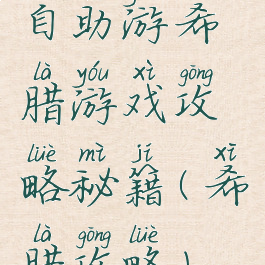 自助游希
là yóu xì gōng
腊游戏攻
lüè mì jí xī
略秘籍(希
là gōng lüè
腊攻略)